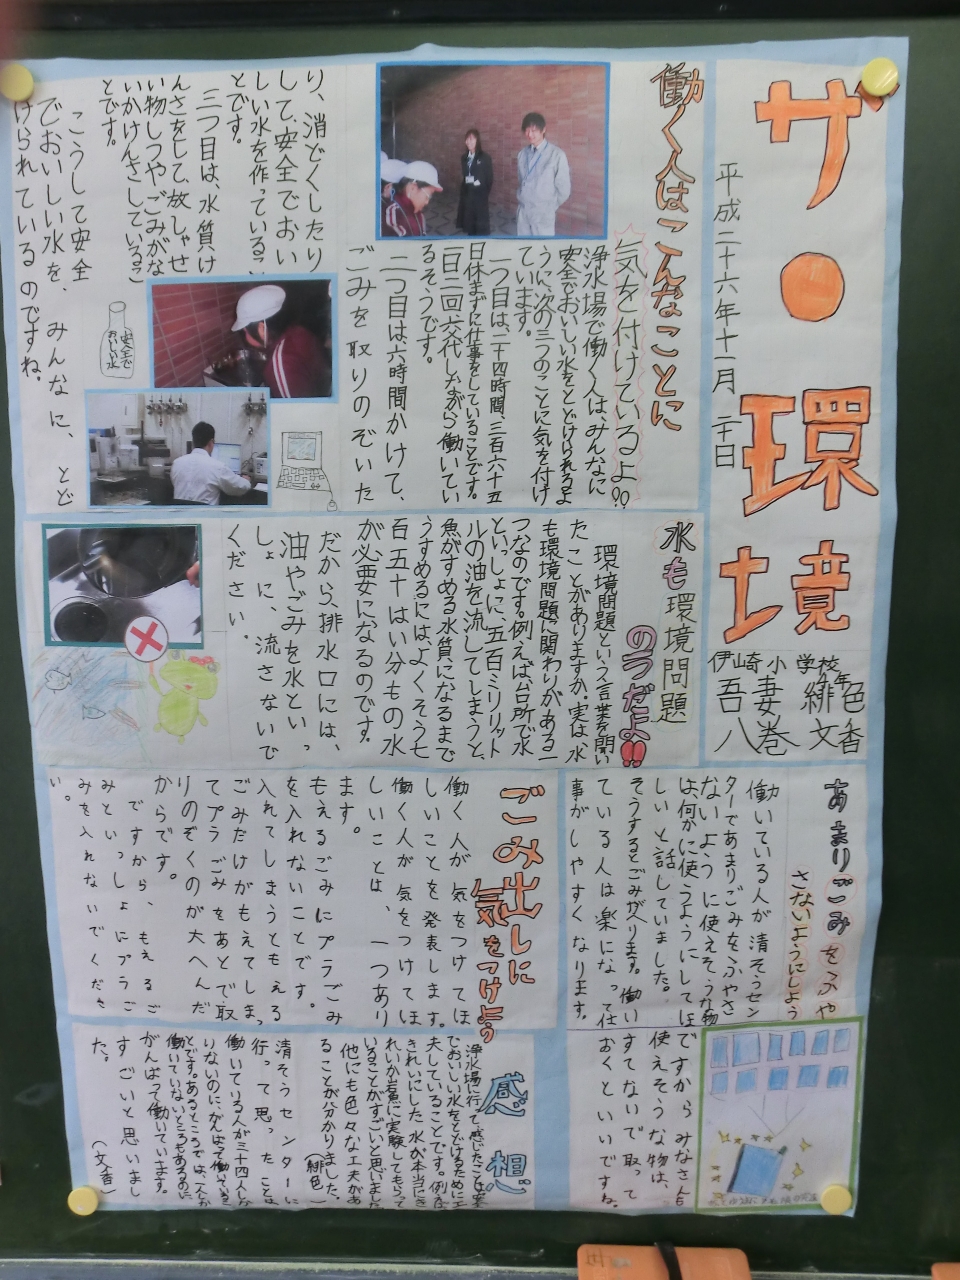 ザ・環境
平成二十六年十一月二十日
伊山奇小学校
四年
吾妻　緋色
八巻　文香
働く人はこんなことに
気を付けているよ!!
浄水場で働く人は、みんなに
安全でおいしい水をとどけられるよ
うに、次の三つのことに気を付け
ています。
一つ目は、二十四時間、三百六十五
日休まずに仕事をしていることです。
一日二回六代しながら働いてい
るそうです。
二つ目は六時間かけて、
ごみを取りのぞいた
り、消どくしたり
して、安全でおい
しい水を作っているこ
とです。
三つ目は、水質け
んさをして、放しゃせ
い物しつやごみがな
いかけんさしているこ
とです。
こうして安全
でおいしい水を、みんなに、とど
けられているのですね。
安全で
おいしい
水
水も環境問題
のうつだよ!!
環境問題という言葉を聞い
たことがありますか。実は、水
も環境問題に関わりがある一
つなのです。例えば、台所で水
といっしょに、五百ミリリット
ルの油を流してしまうと、
魚がすめる水質になるまで
うすめるには、よくそう七
百五十はい分もの水
が必要になるのです。
だから、排水口には、
油やごみを水といっ
しょに、流さないで
ください。
あまりごみをふや
さないようにしよう
働いている人が清そうセン
ターであまりごみをふやさ
ないように使えそうな物
は、何かに使うようにしてほ
しいと話していました。
そうするとごみがへります。働い
ている人は楽になって仕
事がしやすくなります。
ですからみなさんも
使えそうな物は、
すてないで取って
おくといいですね。
ごみ出しに
気をつけよう
働く人が気をつけてほ
しいことを発表します。
働く人が気をつけてほ
しいことは、一つあり
ます。
もえるごみにプラごみ
を入れないことです。
入れてしまうともえる
ごみだけがもえてしまっ
てプラごみをあとで取
りのぞくのが大へんだ
からです。
ですから、もえるご
みといっしょにプラご
みを入れないでくださ
い。
感想
浄水場に行って感じたことは、安
でおいしい水をとどけるために工
夫していることです。例え
きれいにした水が本当にき
れいか岩魚に実験してもらって
いることがすごいと思いました
他にも色々な工夫があ
ることが分かりました。
（緋色）
清そうセンターに
行って思ったことは
働いている人が三十四人しか
りないのに、がんばって働いている
とです。あるところでは、一人しか
働いていないところもあるのに
がんばって働いています。
すごいと思いまし
た。
（文香）